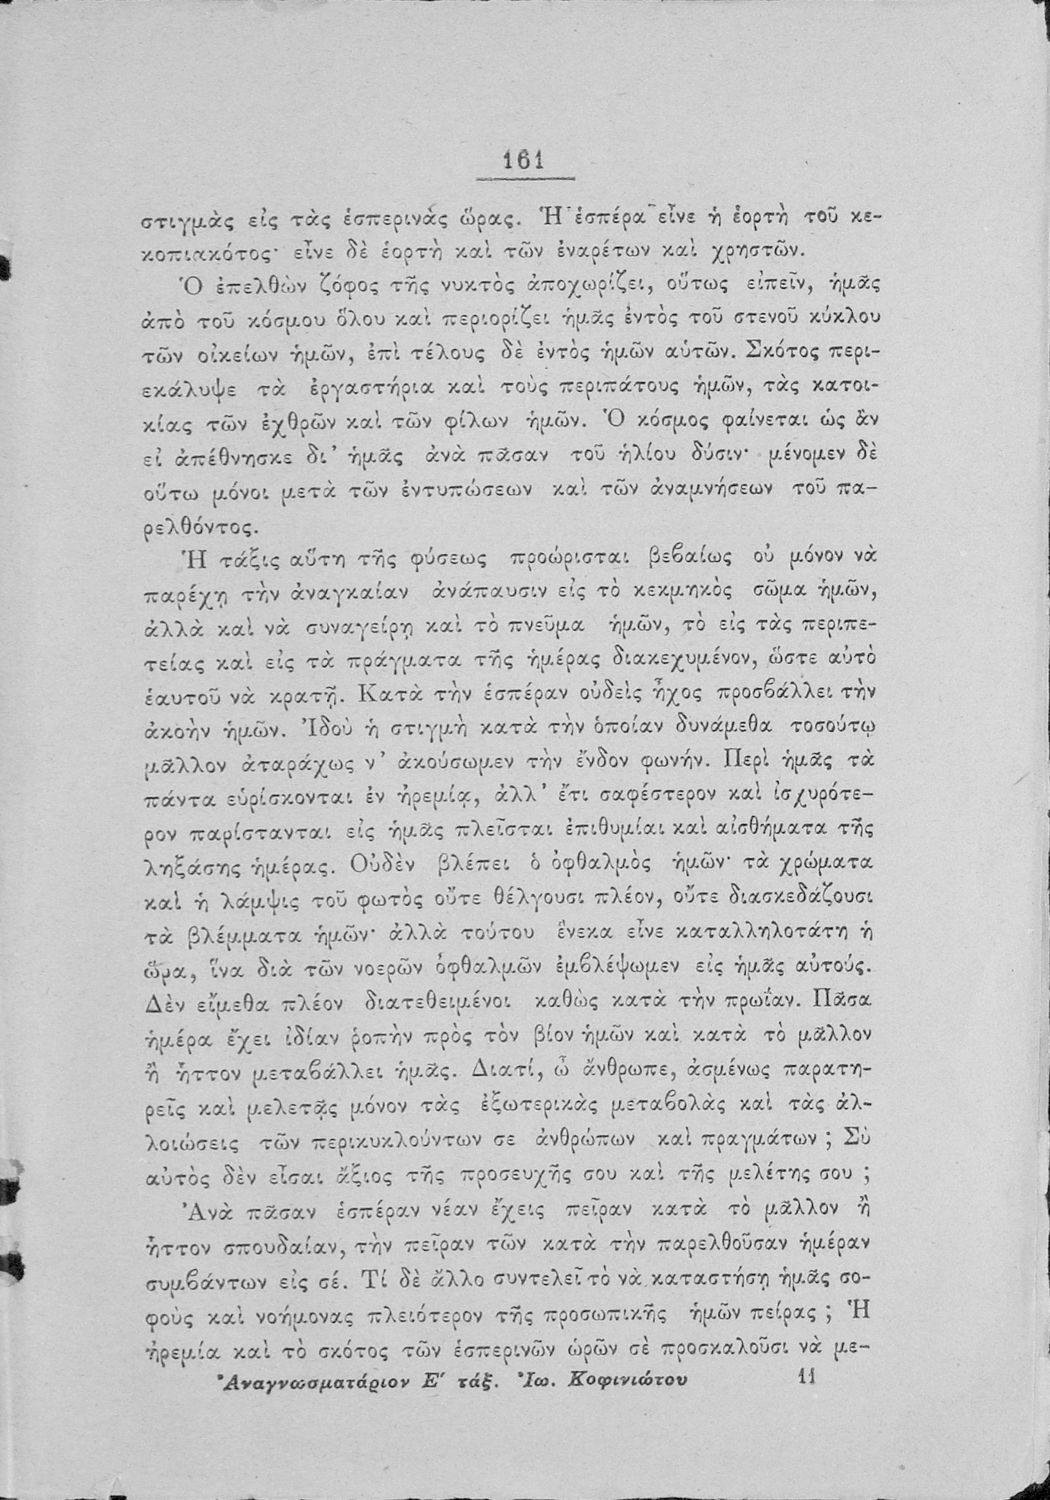 161
στιγμὰς εἰς τὰς ἑσπερινὰς ὥρας. Ἡ ἑσπέρα εἶνε ἡ ἑορτὴ τοῦ κε-
κοπιακότος· εἶνε δὲ ἑορτὴ καὶ τῶν ἐναρέτων καὶ χρηστῶν.
Ὁ ἐπελθὼν ζόφος τῆς νυκτὸς ἀποχωρίζει, οὕτως εἰπεῖν, ἡμᾶς
ἀπὸ τοῦ κόσμου ὅλου καὶ περιορίζει ἡμᾶς ἐντὸς τοῦ στενοῦ κύκλου
τῶν οἰκείων ἡμῶν, ἐπὶ τέλους δὲ ἐντὸς ἡμῶν αὐτῶν. Σκότος περι-
εκάλυψε τὰ ἐργαστήρια καὶ τοὺς περιπάτους ἡμῶν, τὰς κατοι-
κίας τῶν ἐχθρῶν καὶ τῶν φίλων ἡμῶν. Ὁ κόσμος φαίνεται ὡς ἂν
εἰ ἀπέθνησκε δι’ ἡμᾶς ἀνὰ πᾶσαν τοῦ ἡλίου δύσιν· μένομεν δὲ
οὕτω μόνοι μετὰ τῶν ἐντυπώσεων καὶ τῶν ἀναμνήσεων τοῦ πα-
ρελθόντος.
Ἡ τάξις αὕτη τῆς φύσεως προώρισται βεβαίως οὐ μόνον νὰ
παρέχῃ τὴν ἀναγκαίαν ἀνάπαυσιν εἰς τὸ κεκμηκὸς σῶμα ἡμῶν,
ἀλλὰ καὶ νὰ συναγείρῃ καὶ τὸ πνεῦμα ἡμῶν, τὸ εἰς τὰς περιπε-
τείας καὶ εἰς τὰ πράγματα τῆς ἡμέρας διακεχυμένον, ὥστε αὐτὸ
ἑαυτοῦ νὰ κρατῇ. Κατὰ τὴν ἑσπέραν οὐδεὶς ἦχος προσβάλλει τὴν
ἀκοὴν ἡμῶν. Ἰδοὺ ἡ στιγμὴ κατὰ τὴν ὁποίαν δυνάμεθα τοσούτῳ
μᾶλλον ἀταράχως ν’ ἀκούσωμεν τὴν ἔνδον φωνήν. Περὶ ἡμᾶς τὰ
πάντα εὑρίσκονται ἐν ἠρεμίᾳ, ἀλλ’ ἔτι σαφέστερον καὶ ἰσχυρότε-
ρον παρίστανται εἰς ἡμᾶς πλεῖσται ἐπιθυμίαι καὶ αἰσθήματα τῆς
ληξάσης ἡμέρας. Οὐδὲν βλέπει ὁ ὀφθαλμὸς ἡμῶν· τὰ χρώματα
καὶ ἡ λάμψις τοῦ φωτὸς οὔτε θέλγουσι πλέον, οὔτε διασκεδάζουσι
τὰ βλέμματα ἡμῶν· ἀλλὰ τούτου ἕνεκα εἶνε καταλληλοτάτη ἡ
ὥρα, ἵνα διὰ τῶν νοερῶν ὀφθαλμῶν ἐμβλέψωμεν εἰς ἡμᾶς αὐτούς.
Δὲν εἴμεθα πλέον διατεθειμένοι καθὼς κατὰ τὴν πρωΐαν. Πᾶσα
ἡμέρα ἔχει ἰδίαν ῥοπὴν πρὸς τὸν βίον ἡμῶν καὶ κατὰ τὸ μᾶλλον
ἢ ἧττον μεταβάλλει ἡμᾶς. Διατί, ὦ ἄνθρωπε, ἀσμένως παρατη-
ρεῖς καὶ μελετᾷς μόνον τὰς ἐξωτερικὰς μεταβολὰς καὶ τὰς ἀλ-
λοιώσεις τῶν περικυκλούντων σε ἀνθρώπων καὶ πραγμάτων ; Σὺ
αὐτὸς δὲν εἶσαι ἄξιος τῆς προσευχῆς σου καὶ τῆς μελέτης σου ;
Ἀνὰ πᾶσαν ἑσπέραν νέαν ἔχεις πεῖραν κατὰ τὸ μᾶλλον ἢ
ἧττον σπουδαίαν, τὴν πεῖραν τῶν κατὰ τὴν παρελθοῦσαν ἡμέραν
συμβάντων εἰς σέ. Τί δὲ ἄλλο συντελεῖ τὸ νὰ καταστήσῃ ἡμᾶς σο-
φοὺς καὶ νοήμονας πλειότερον τῆς προσωπικῆς ἡμῶν πείρας ; Ἡ
ἠρεμία καὶ τὸ σκότος τῶν ἑσπερινῶν ὡρῶν σὲ προσκαλοῦσι νὰ με-
Ἀναγνωσματάριον Ε΄ τάξ. Ἰω. Κοφινιώτου 11